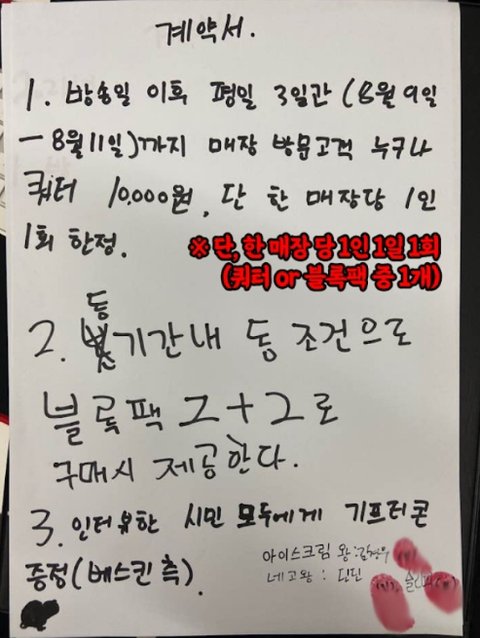 계약서.
1. 방송일 이후 평일 3일간 (8월 9일
- 8월 11일)까지 매장 방문고객 누구나
쿼터 10,000원, 단 한 매장당 1인
1회 한정.
※ 단, 한 매장 당 1인 1일 1회
(쿼터 or 블록팩 중 1개)
동
2. 기간내 동 조건으로
블록팩 2+2로
구매시 제공한다.
3. 인터뷰한 시민 모두에게 기프티콘
증정(베스킨 측).
아이스크림 왕:
네고왕 : 딘딘